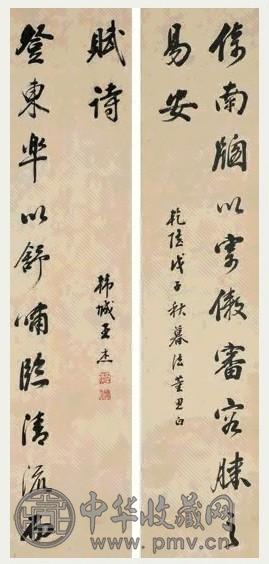 倚南牕以寄傲審容膝之
易安
乾隆戊子秋暮董思白
登東皋以舒嘯臨清流而
賦詩
韓城王杰
中华收藏网
www.pmv.cn